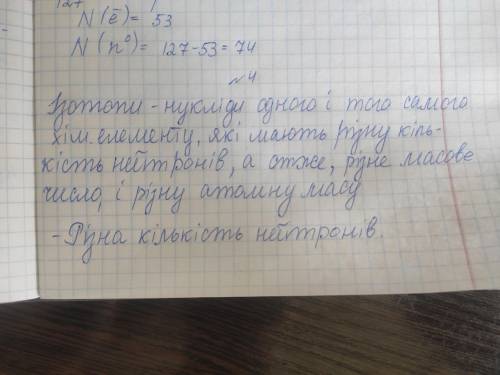 127
N(ē)= 53
N(n⁰)= 127-53=74
№4
Ізотопи - нукліди одного і того самого
хім. елементу, які мають різну кіль-
кість нейтронів, а отже, різне масове
число, і різну атомну масу
- Різна кількість нейтронів.